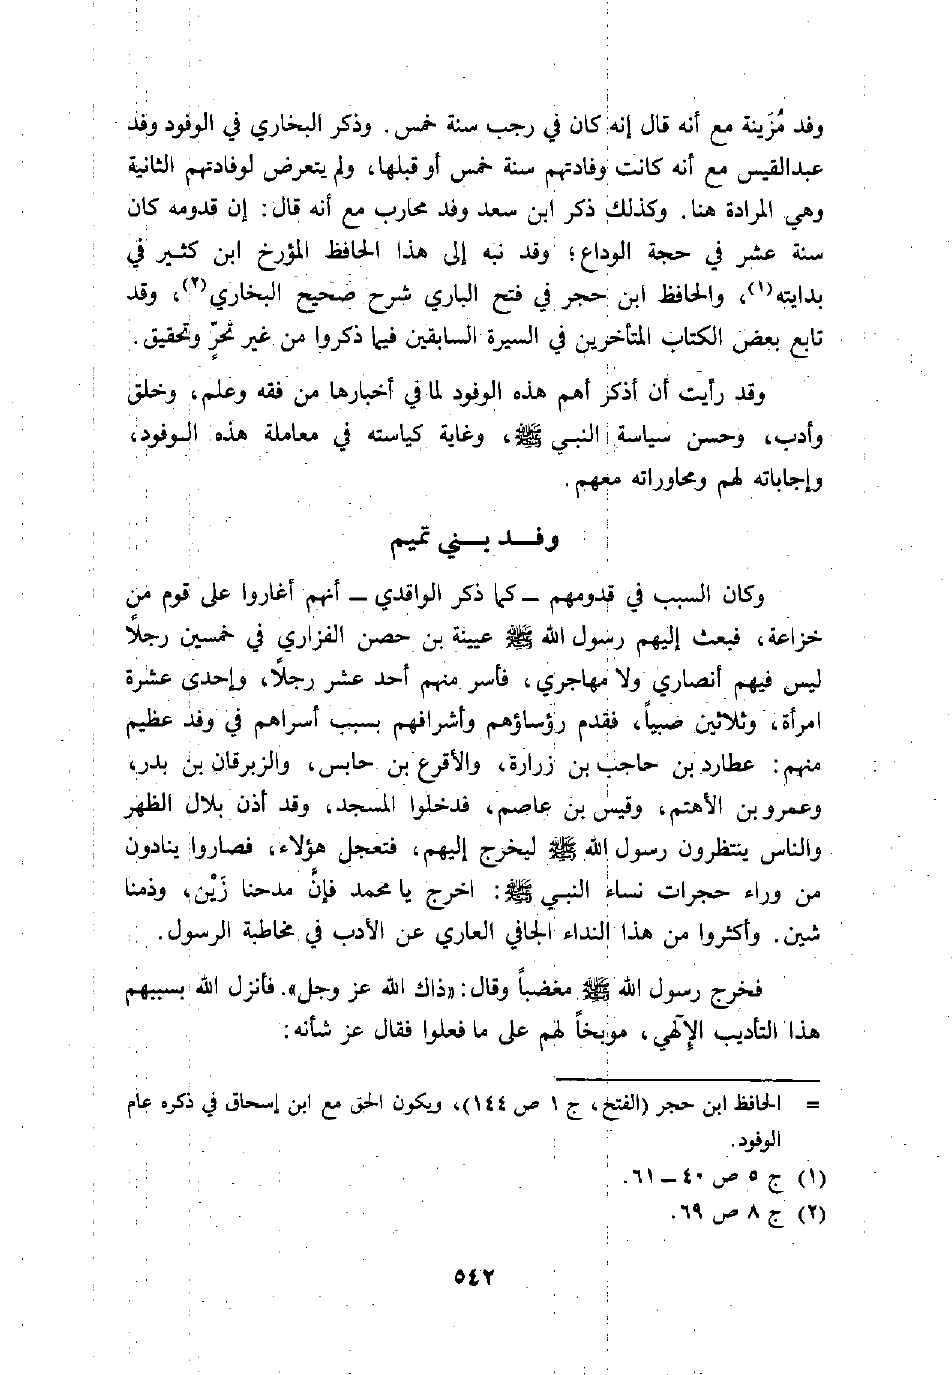 وفد مُزَينة مع أنه قال إنه كان في رجب سنة خمس. وذكر البخاري في الوفود وفد
عبدالقيس مع أنه كانت وفادتهم سنة خمس أو قبلها، ولم يتعرض لوفادتهم الثانية
وهي المرادة هنا. وكذلك ذكر ابن سعد وفد محارب مع أنه قال: إن قدومه كان
سنة عشر في حجة الوداع؛ وقد نبه إلى هذا الحافظ المؤرخ ابن كثير في
بدايته(١)، والحافظ ابن حجر في فتح الباري شرح صحيح البخاري(٢)، وقد
تابع بعض الكتاب المتأخرين في السيرة السابقين فيما ذكروا من غير تحرٍّ وتحقيق.
وقد رأيت أن أذكر أهم هذه الوفود لما في أخبارها من فقه وعلم، وخلق
وأدب، وحسن سياسة النبي ﷺ، وغاية كياسته في معاملة هذه الوفود،
وإجاباته لهم ومحاوراته معهم.
وفـــد بـــني تميم
وكان السبب في قدومهم ــ كما ذكر الواقدي ــ أنهم أغاروا على قوم من
خزاعة، فبعث إليهم رسول الله ﷺ عيينة بن حصن الفزاري في خمسين رجلاً
ليس فيهم أنصاري ولا مهاجري، فأسر منهم أحد عشر رجلاً، وإحدى عشرة
امرأة، وثلاثين صبياً، فقدم رؤساؤهم وأشرافهم بسبب أسراهم في وفد عظيم
منهم: عطارد بن حاجب بن زرارة، والأقرع بن حابس، والزبرقان بن بدر،
وعمرو بن الأهتم، وقيس بن عاصم، فدخلوا المسجد، وقد أذن بلال الظهر
والناس ينتظرون رسول الله ﷺ ليخرج إليهم، فتعجل هؤلاء، فصاروا ينادون
من وراء حجرات نساء النبي ﷺ: اخرج يا محمد فإنَّ مدحنا زَيْن، وذمنا
شين. وأكثروا من هذا النداء الجافي العاري عن الأدب في مخاطبة الرسول.
فخرج رسول الله ﷺ مغضباً وقال: «ذاك الله عز وجل». فأنزل الله بسببهم
هذا التأديب الإلٓهي، موبخاً لهم على ما فعلوا فقال عز شأنه:
= الحافظ ابن حجر (الفتح، ج ١ ص ١٤٤)، ويكون الحق مع ابن إسحاق في ذكره عام
الوفود.
(١) ج ٥ ص ٤٠ ــ ٦١.
(٢) ج ٨ ص ٦٩.
٥٤٢